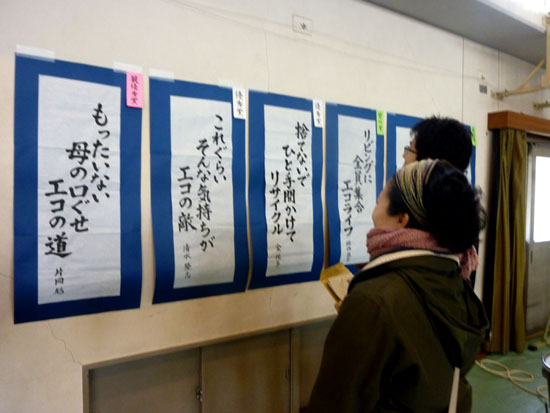 最優秀賞
もったいない
母の口ぐせ
エコの道
片岡
優秀賞
これぐらい
そんな気持ちが
エコの敵
清水
優秀賞
捨てないで
ひと手間かけて
リサイクル
リビングに
全員集合
エコライフ